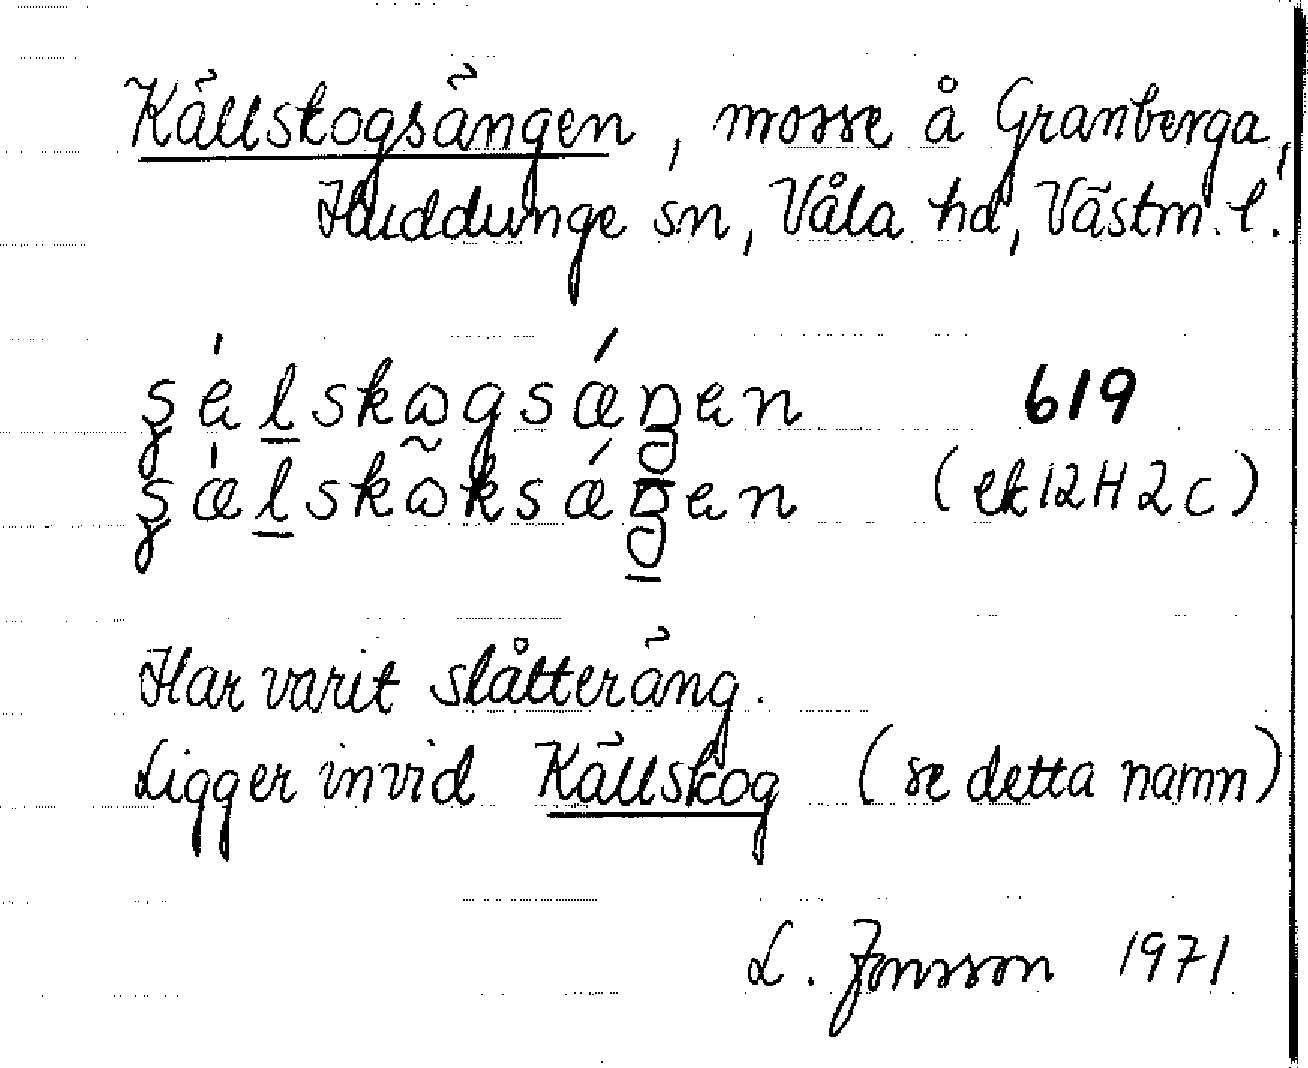 Källskogsängen, mosse å Granberga,
Huddunge sn, Våla hd, Västm. l.
619
(ek 12 H 2 c)
Har varit slåtteräng.
Ligger invid Källskog (se detta namn)
L. Jonsson 1971